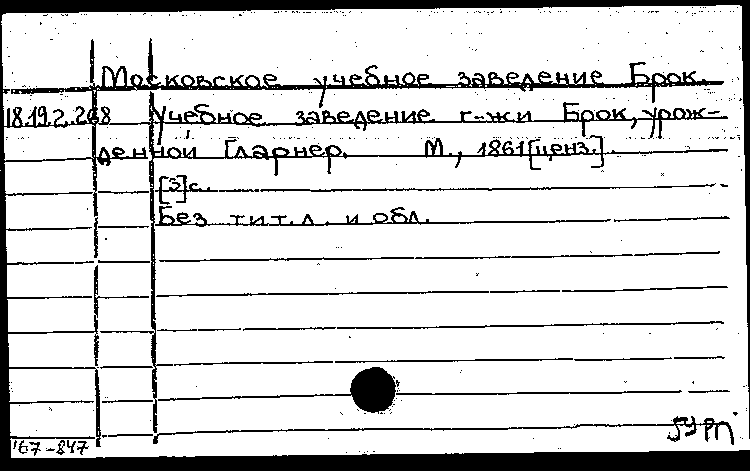 Московское учебное заведение Брок.
18.19.2.268 Учебное заведение г-жи Брок, урож-
денной Гларнер. М., 1861 [ценз.].
[3]с.
Без тит.л. и обл.
167-847